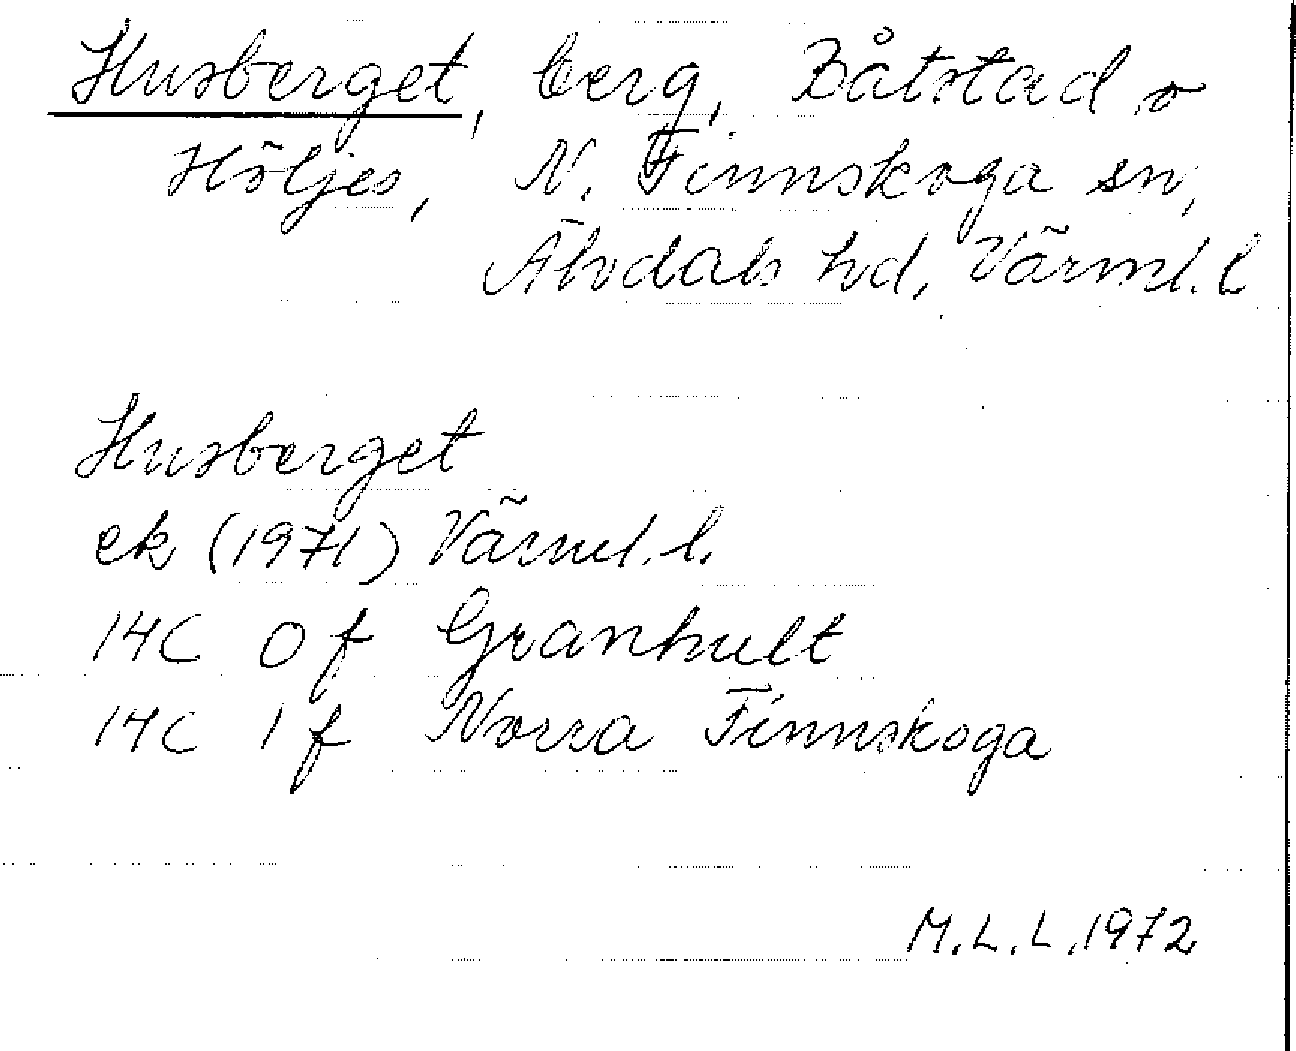 Husberget, berg, Båtstad o
Höljes, N. Finnskoga sn,
Älvdals hd, Värml. l
Husberget
ek (1971) Värml. l.
14C 0 f Granhult
14C 1 f Norra Finnskoga
M.L.L. 1972